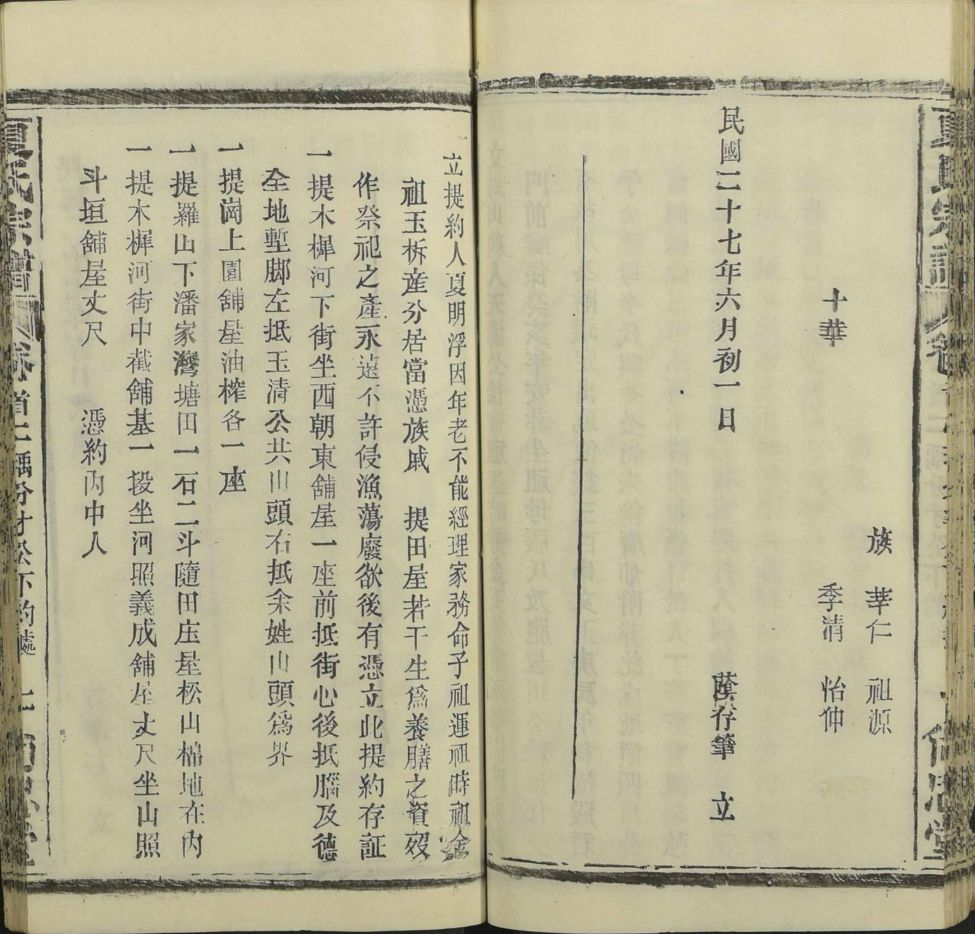 十華
族 華仁 祖源
季清 怡仲
民國三十七年六月初一日 蓂存筆 立
一立提約人夏明浮因年老不能經理家務命子祖運祖時祖金
祖玉柝產分居當憑族戚 提田屋若干生爲養膳之資歿
作祭祀之產永遠不許侵漁蕩廢欲後有憑立此提約存証
一提木樨河下街坐西朝東舖屋一座前抵街心後抵腦及德
全地塹脚左抵玉清公共山頭右抵余姓山頭爲界
一提崗上園舖屋油榨各一座
一提羅山下潘家灣塘田一石二斗隨田庄屋松山棉地在內
一提木樨河街中截舖基一段坐河照義成舖屋丈尺坐山照
斗垣舖屋丈尺 憑約內中人
夏氏宗譜 卷首二 尚忠堂
夏氏宗譜 卷首二